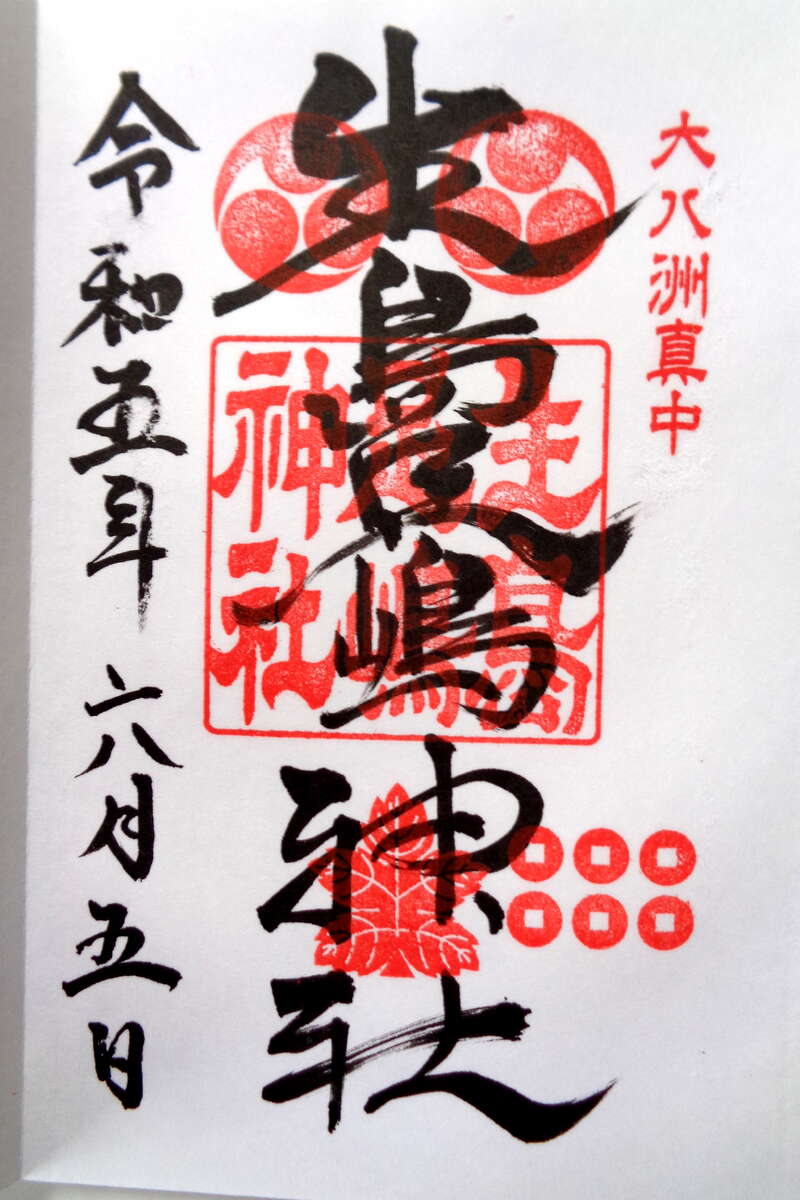 大八洲真中
生島足嶋神社
生島足嶋神社
令和五年六月五日